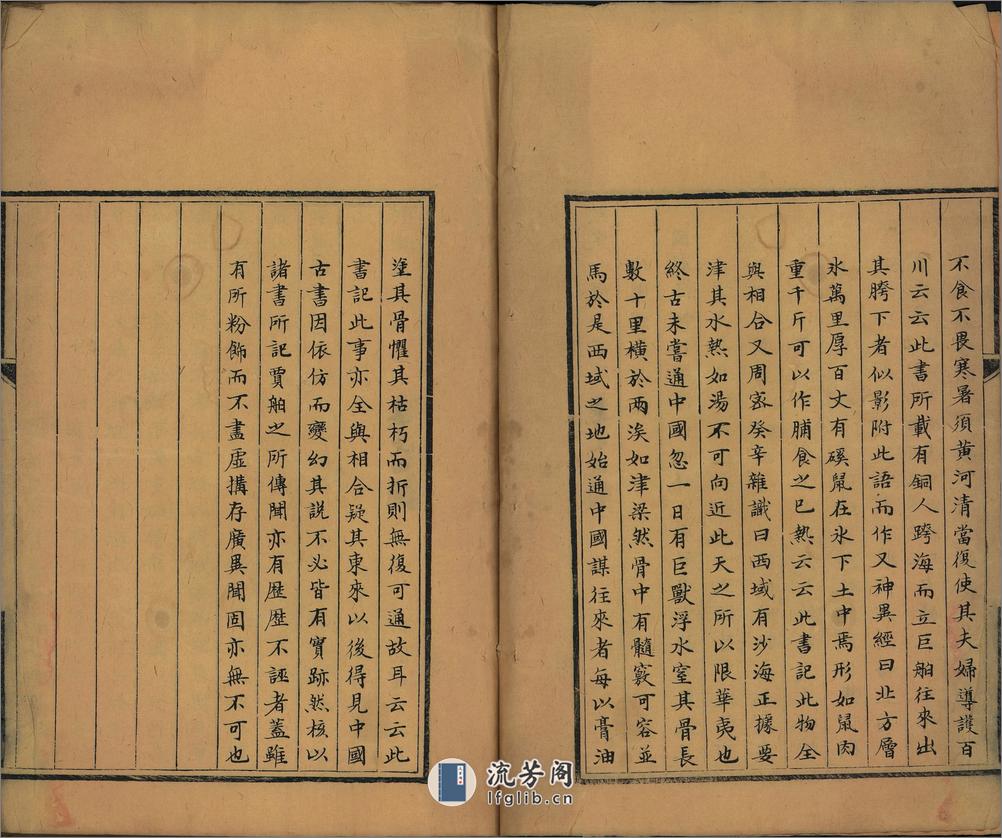 不食不畏寒暑須黄河清當復使其夫婦導護百
川云云此書所載有銅人跨海而立巨舶往來出
其胯下者似影附此語而作又神異經曰北方層
氷萬里厚百丈有磎鼠在氷下土中焉形如鼠肉
重千斤可以作脯食之已熱云云此書記此物全
與相合又周宻癸辛雜識曰西域有沙海正據要
津其水熱如湯不可向近此天之所以限華夷也
終古未嘗通中國忽一日有巨獸浮水室其骨長
數十里横於兩涘如津梁然骨中有髓竅可容並
馬於是西域之地始通中國謀往來者每以膏油
塗其骨懼其枯朽而折則無復可通故耳云云此
書記此事亦全與相合疑其東來以後得見中國
古書因依仿而變幻其說不必皆有實跡然核以
諸書所記賈舶之所傳聞亦有歴歴不誣者蓋雖
有所粉飾而不盡虛搆存廣異聞固亦無不可也
流芳阁
lfglib.cn